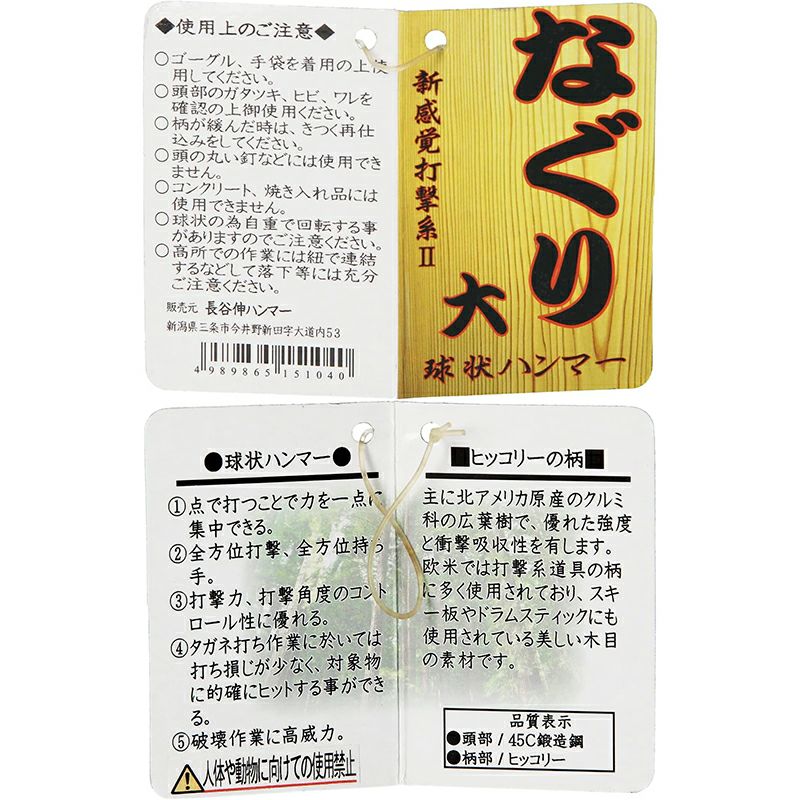 ◆使用上のご注意◆
○ゴーグル、手袋を着用の上使
用してください。
○頭部のガタツキ、ヒビ、ワレを
確認の上御使用ください。
○柄が緩んだ時は、きつく再仕
込みをしてください。
○頭の丸い釘などには使用でき
ません。
○コンクリート、焼き入れ品には
使用できません。
○球状の為自重で回転する事
がありますのでご注意ください。
○高所での作業には紐で連結
するなどして落下等には充分
ご注意ください。
販売元 長谷伸ハンマー
新潟県三条市今井野新田字大道内53
4989865 151040
なぐり
新感覚打撃系Ⅱ
大
球状ハンマー
●球状ハンマー●
①点で打つことで力を一点に
集中できる。
②全方位打撃、全方位持ち
手。
③打撃力、打撃角度のコント
ロール性に優れる。
④タガネ打ち作業に於いては
打ち損じが少なく、対象物
に的確にヒットする事ができ
る。
⑤破壊作業に高威力。
人体や動物に向けての使用禁止
■ヒッコリーの柄■
主に北アメリカ原産のクルミ
科の広葉樹で、優れた強度
と衝撃吸収性を有します。
欧米では打撃系道具の柄
に多く使用されており、スキ
ー板やドラムスティックにも
使用されている美しい木目
の素材です。
品質表示
●頭部/45C鍛造鋼
●柄部/ヒッコリー